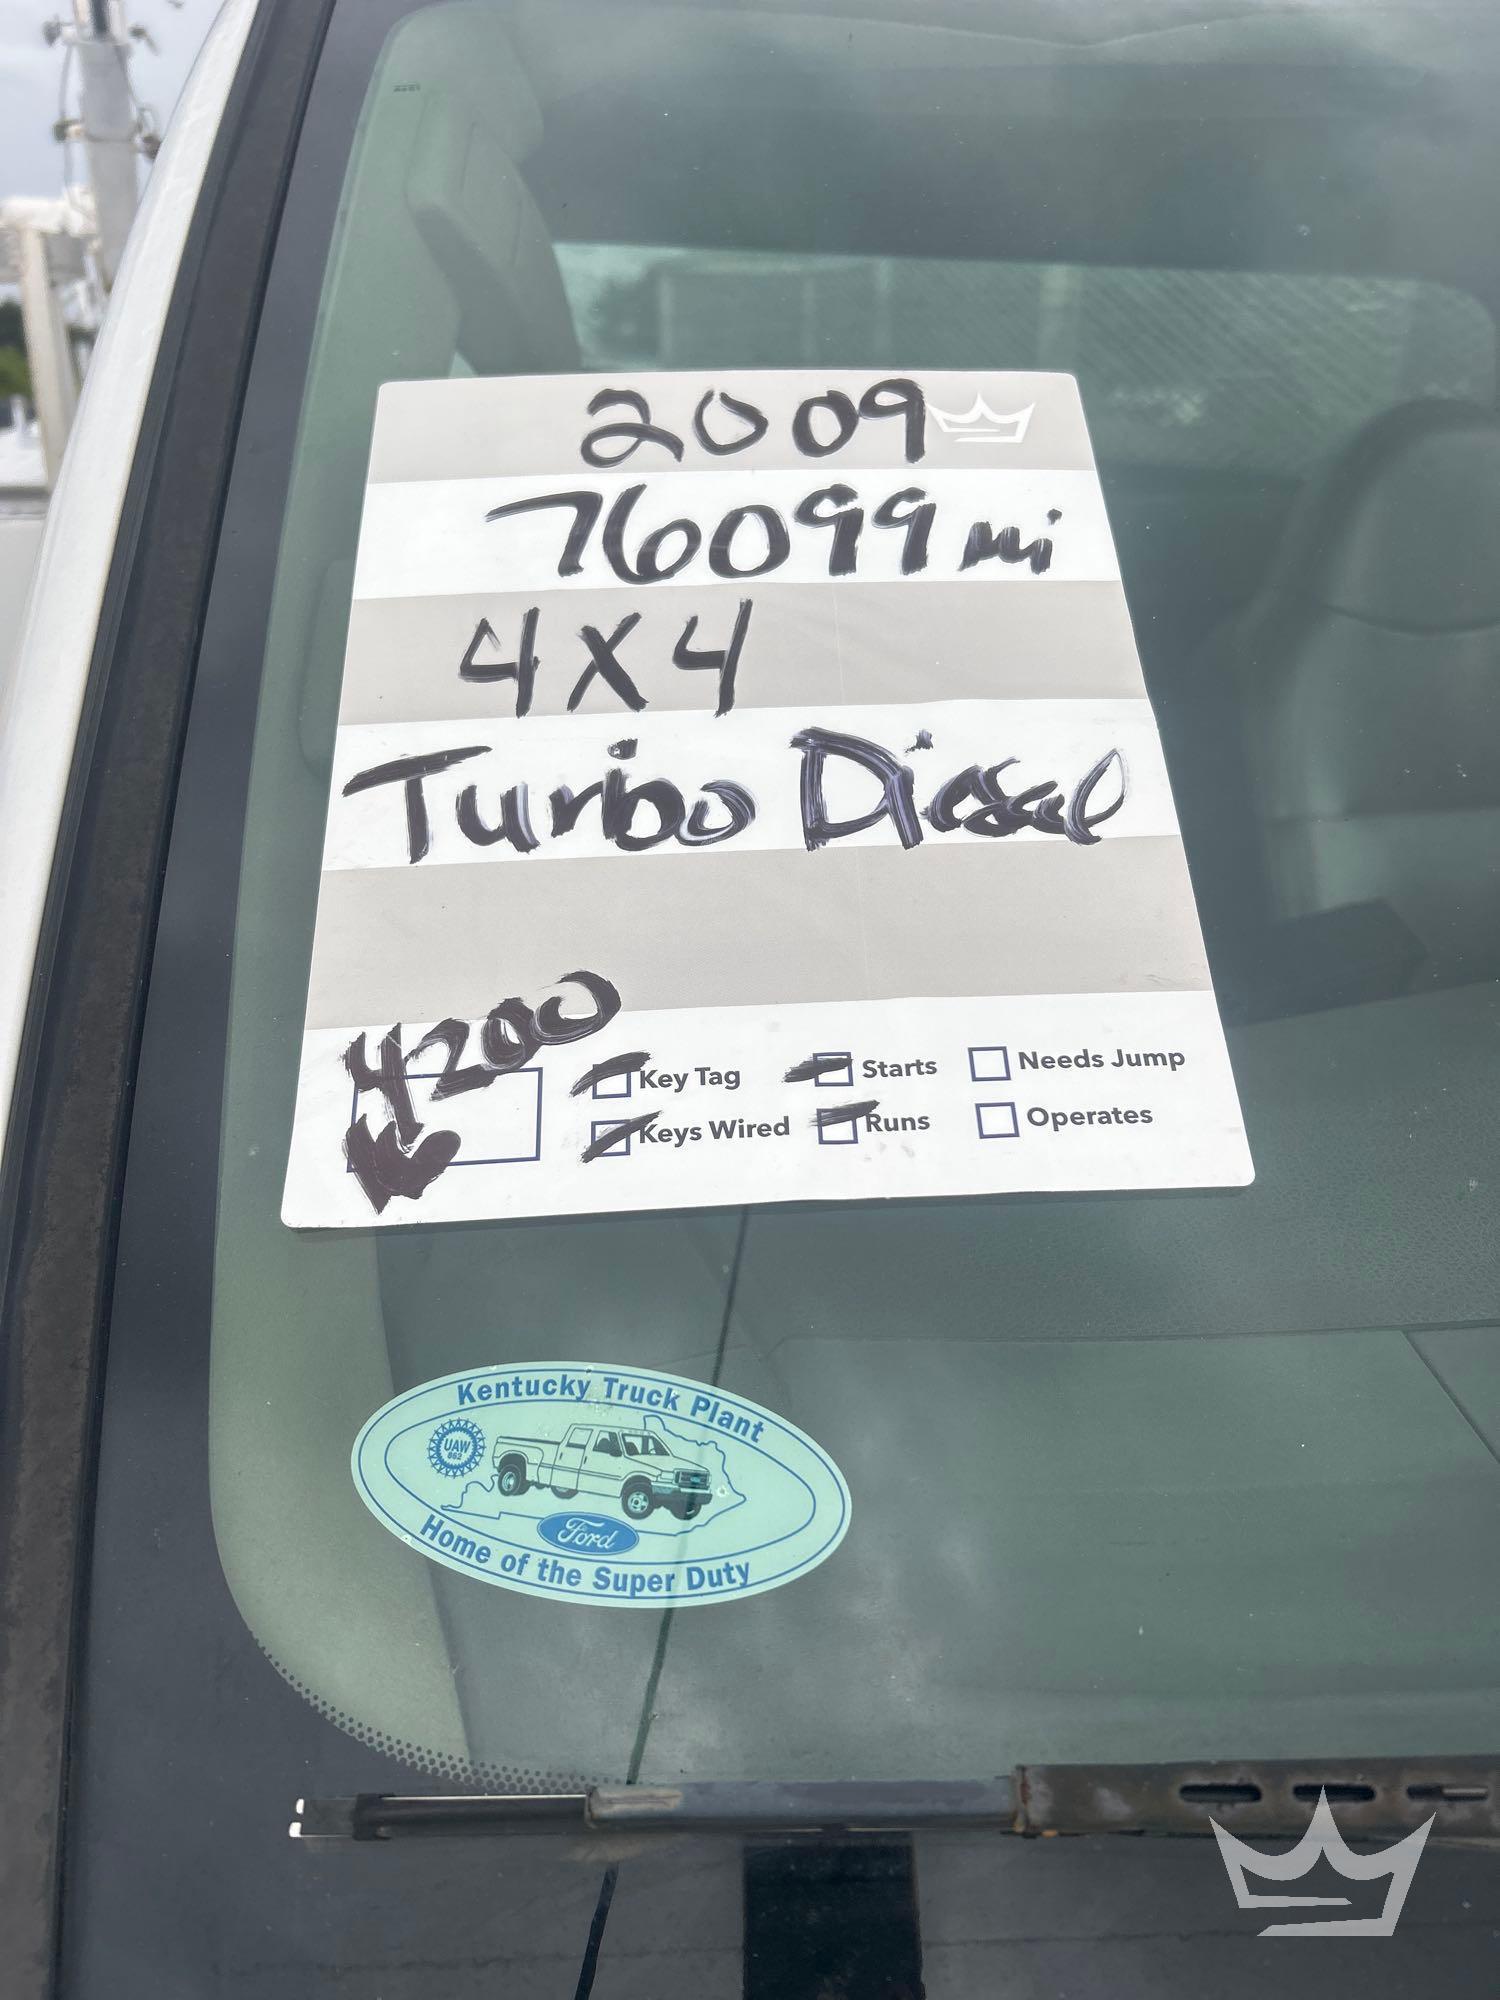 2009
76099 mi
4X4
Turbo Diesel
4200
Key Tag Starts Needs Jump
Keys Wired Runs Operates
Kentucky Truck Plant
UAW
862
Ford
Home of the Super Duty